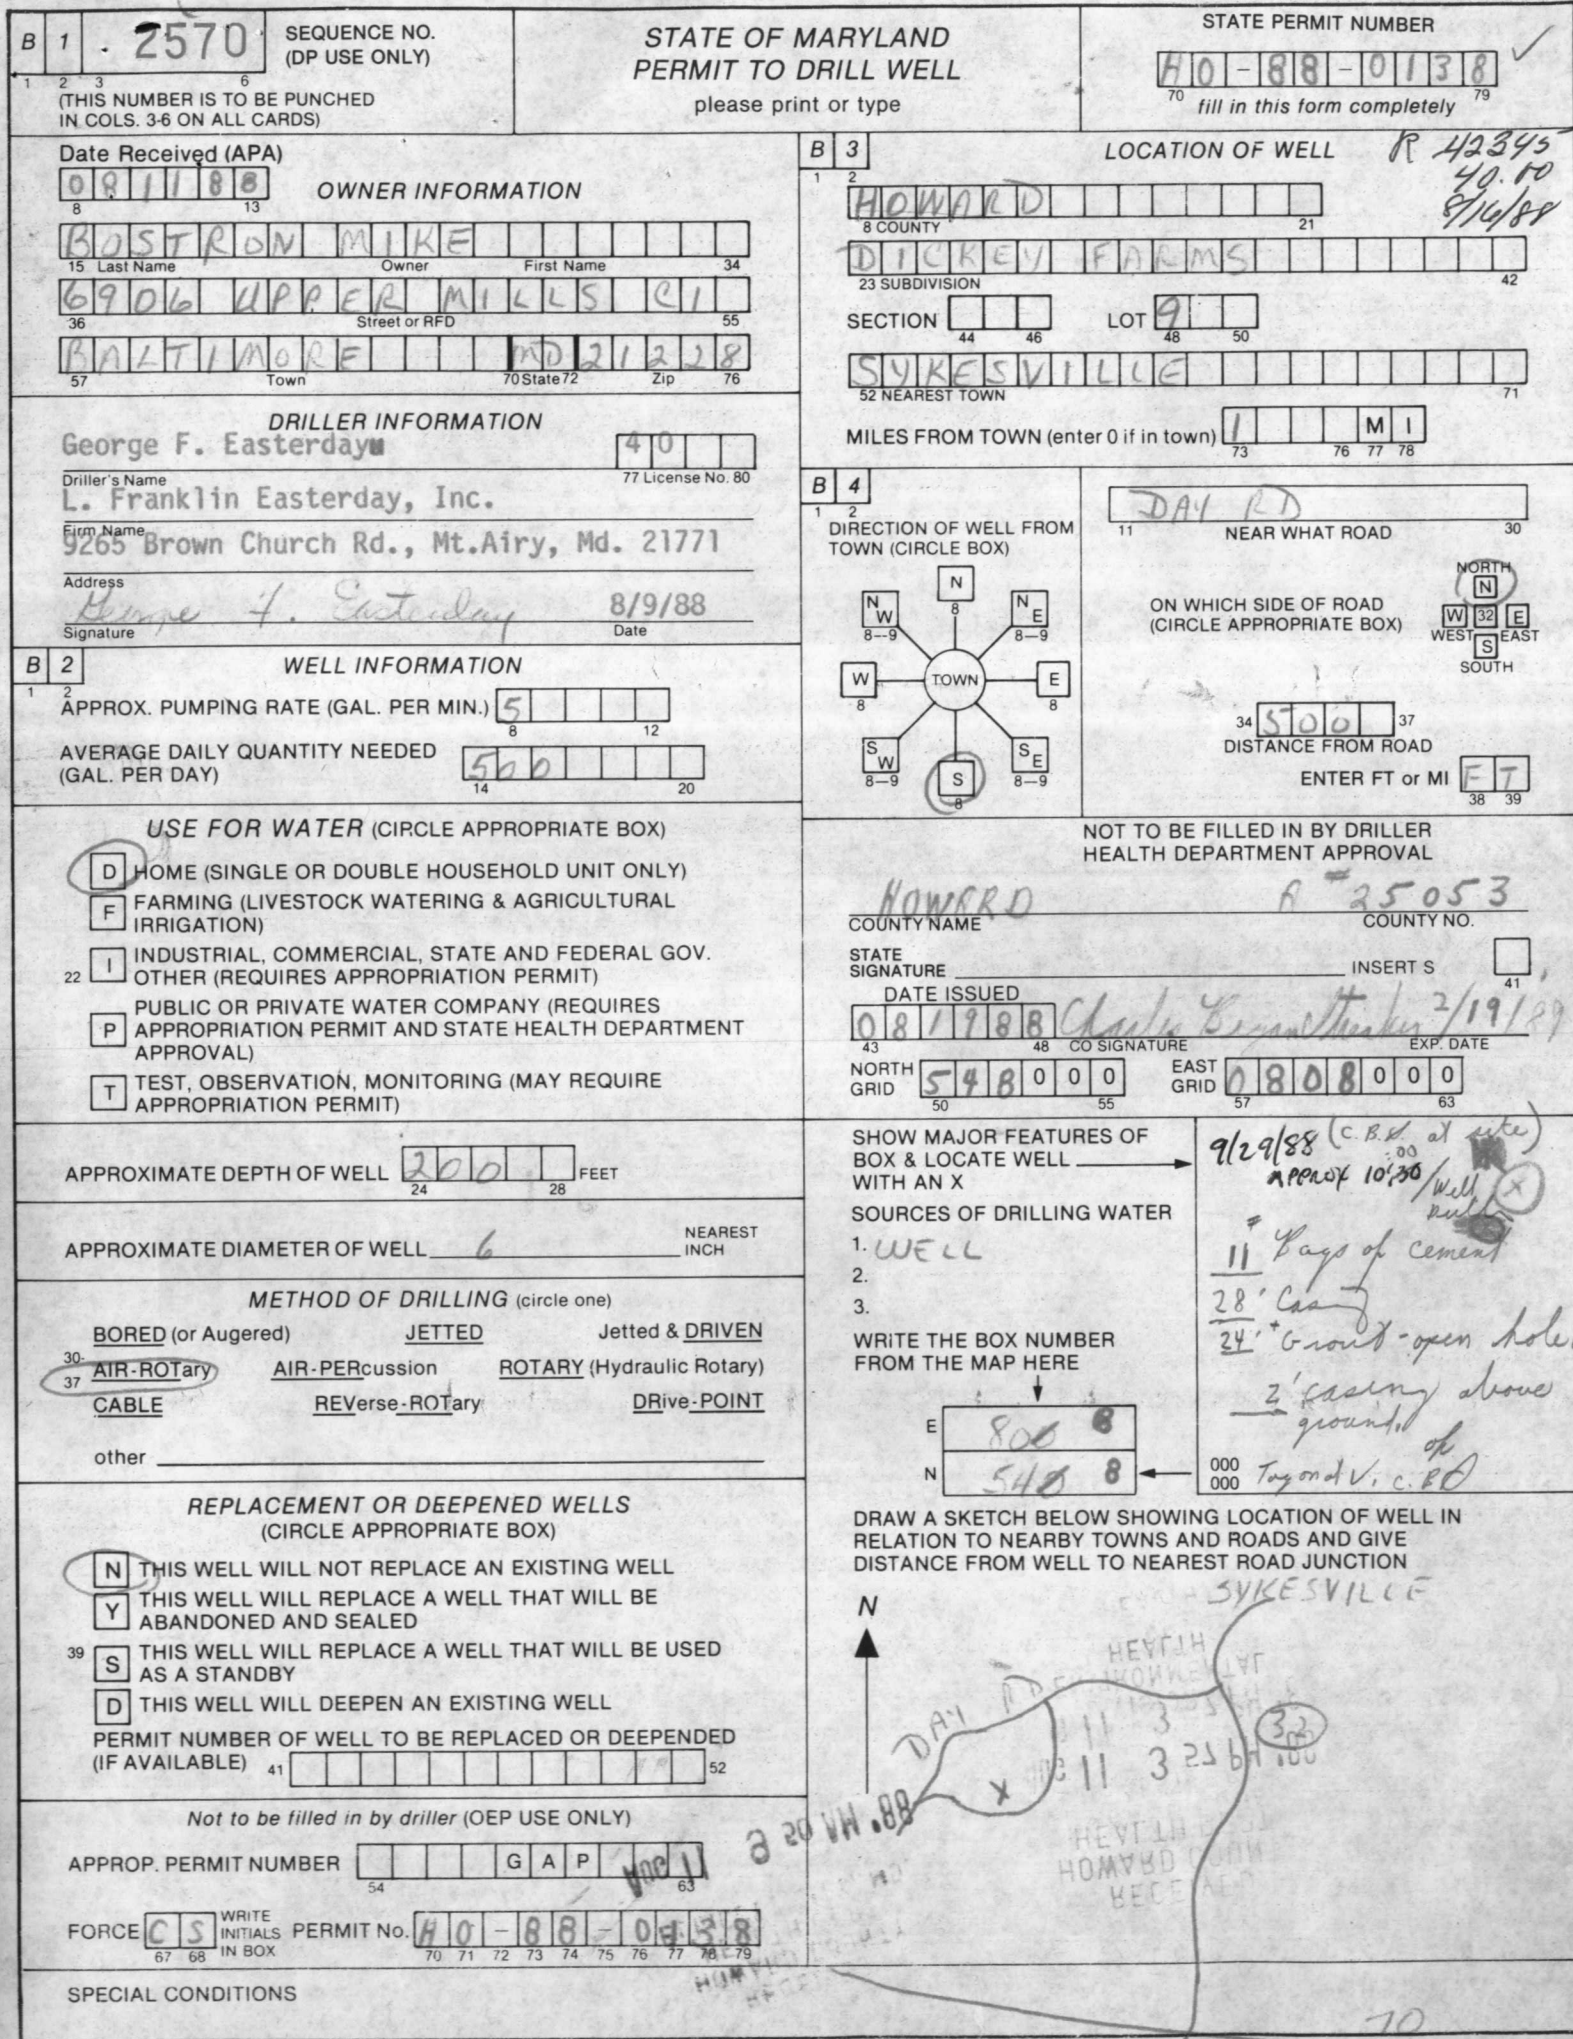 B 1 . 2570 SEQUENCE NO. (DP USE ONLY)
1 2 3 6
(THIS NUMBER IS TO BE PUNCHED
IN COLS. 3-6 ON ALL CARDS)
STATE OF MARYLAND
PERMIT TO DRILL WELL
please print or type
STATE PERMIT NUMBER
HO-88-0138
70 79
fill in this form completely
Date Received (APA)
081188
8 13
OWNER INFORMATION
BOSTRON MIKE
15 Last Name Owner First Name 34
6906 UPPER MILLS CI
36 Street or RFD 55
BALTIMORE MD 21228
57 Town 70 State 72 Zip 76
DRILLER INFORMATION
George F. Easterday
40
Driller's Name 77 License No. 80
L. Franklin Easterday, Inc.
Firm Name
9265 Brown Church Rd., Mt.Airy, Md. 21771
Address
George F. Easterday 8/9/88
Signature Date
B 2 WELL INFORMATION
1 2
APPROX. PUMPING RATE (GAL. PER MIN.) 5
8 12
AVERAGE DAILY QUANTITY NEEDED
(GAL. PER DAY) 500
14 20
USE FOR WATER (CIRCLE APPROPRIATE BOX)
D HOME (SINGLE OR DOUBLE HOUSEHOLD UNIT ONLY)
F FARMING (LIVESTOCK WATERING & AGRICULTURAL
IRRIGATION)
22 I INDUSTRIAL, COMMERCIAL, STATE AND FEDERAL GOV.
OTHER (REQUIRES APPROPRIATION PERMIT)
P PUBLIC OR PRIVATE WATER COMPANY (REQUIRES
APPROPRIATION PERMIT AND STATE HEALTH DEPARTMENT
APPROVAL)
T TEST, OBSERVATION, MONITORING (MAY REQUIRE
APPROPRIATION PERMIT)
APPROXIMATE DEPTH OF WELL 200 FEET
24 28
APPROXIMATE DIAMETER OF WELL 6 NEAREST
INCH
METHOD OF DRILLING (circle one)
BORED (or Augered) JETTED Jetted & DRIVEN
30-
37 AIR-ROTary AIR-PERcussion ROTARY (Hydraulic Rotary)
CABLE REVerse-ROTary DRive-POINT
other
REPLACEMENT OR DEEPENED WELLS
(CIRCLE APPROPRIATE BOX)
N THIS WELL WILL NOT REPLACE AN EXISTING WELL
Y THIS WELL WILL REPLACE A WELL THAT WILL BE
ABANDONED AND SEALED
39 S THIS WELL WILL REPLACE A WELL THAT WILL BE USED
AS A STANDBY
D THIS WELL WILL DEEPEN AN EXISTING WELL
PERMIT NUMBER OF WELL TO BE REPLACED OR DEEPENDED
(IF AVAILABLE) 41 52
Not to be filled in by driller (OEP USE ONLY)
APPROP. PERMIT NUMBER GAP
54 63
AUG 11 9 50 AM '88
FORCE CS WRITE INITIALS IN BOX PERMIT No. HO-88-0138
67 68 70 71 72 73 74 75 76 77 78 79
SPECIAL CONDITIONS
B 3 LOCATION OF WELL
1 2
R 42345
40.00
8/16/88
HOWARD
8 COUNTY 21
DICKEY FARMS
23 SUBDIVISION 42
SECTION LOT 9
44 46 48 50
SYKESVILLE
52 NEAREST TOWN 71
MILES FROM TOWN (enter 0 if in town) 1 MI
73 76 77 78
B 4
1 2
DIRECTION OF WELL FROM
TOWN (CIRCLE BOX)
N
8
NW NE
8--9 8--9
W TOWN E
8 8
SW SE
8--9 8--9
S
8
DAY RD
11 NEAR WHAT ROAD 30
ON WHICH SIDE OF ROAD
(CIRCLE APPROPRIATE BOX)
NORTH
N
W 32 E
WEST EAST
S
SOUTH
34 500 37
DISTANCE FROM ROAD
ENTER FT or MI FT
38 39
NOT TO BE FILLED IN BY DRILLER
HEALTH DEPARTMENT APPROVAL
HOWARD A # 25053
COUNTY NAME COUNTY NO.
STATE
SIGNATURE INSERT S
41
DATE ISSUED
081988 2/19/89
43 48 CO SIGNATURE EXP. DATE
NORTH
GRID 548000 EAST
GRID 0808000
50 55 57 63
SHOW MAJOR FEATURES OF
BOX & LOCATE WELL
WITH AN X
SOURCES OF DRILLING WATER
1. WELL
2.
3.
WRITE THE BOX NUMBER
FROM THE MAP HERE
E 800 8
N 540 8
9/29/88 (C.B.S. at site)
APPROX 10:30
Well
X
11 # Bags of cement
28' Casing
24'+ Grout - open hole
2' casing above
ground.
000
000
DRAW A SKETCH BELOW SHOWING LOCATION OF WELL IN
RELATION TO NEARBY TOWNS AND ROADS AND GIVE
DISTANCE FROM WELL TO NEAREST ROAD JUNCTION
SYKESVILLE
N
DAY RD
32
X
HEALTH
11 3 57 PM
HEALTH
HOWARD COUN
RECEIVED
70